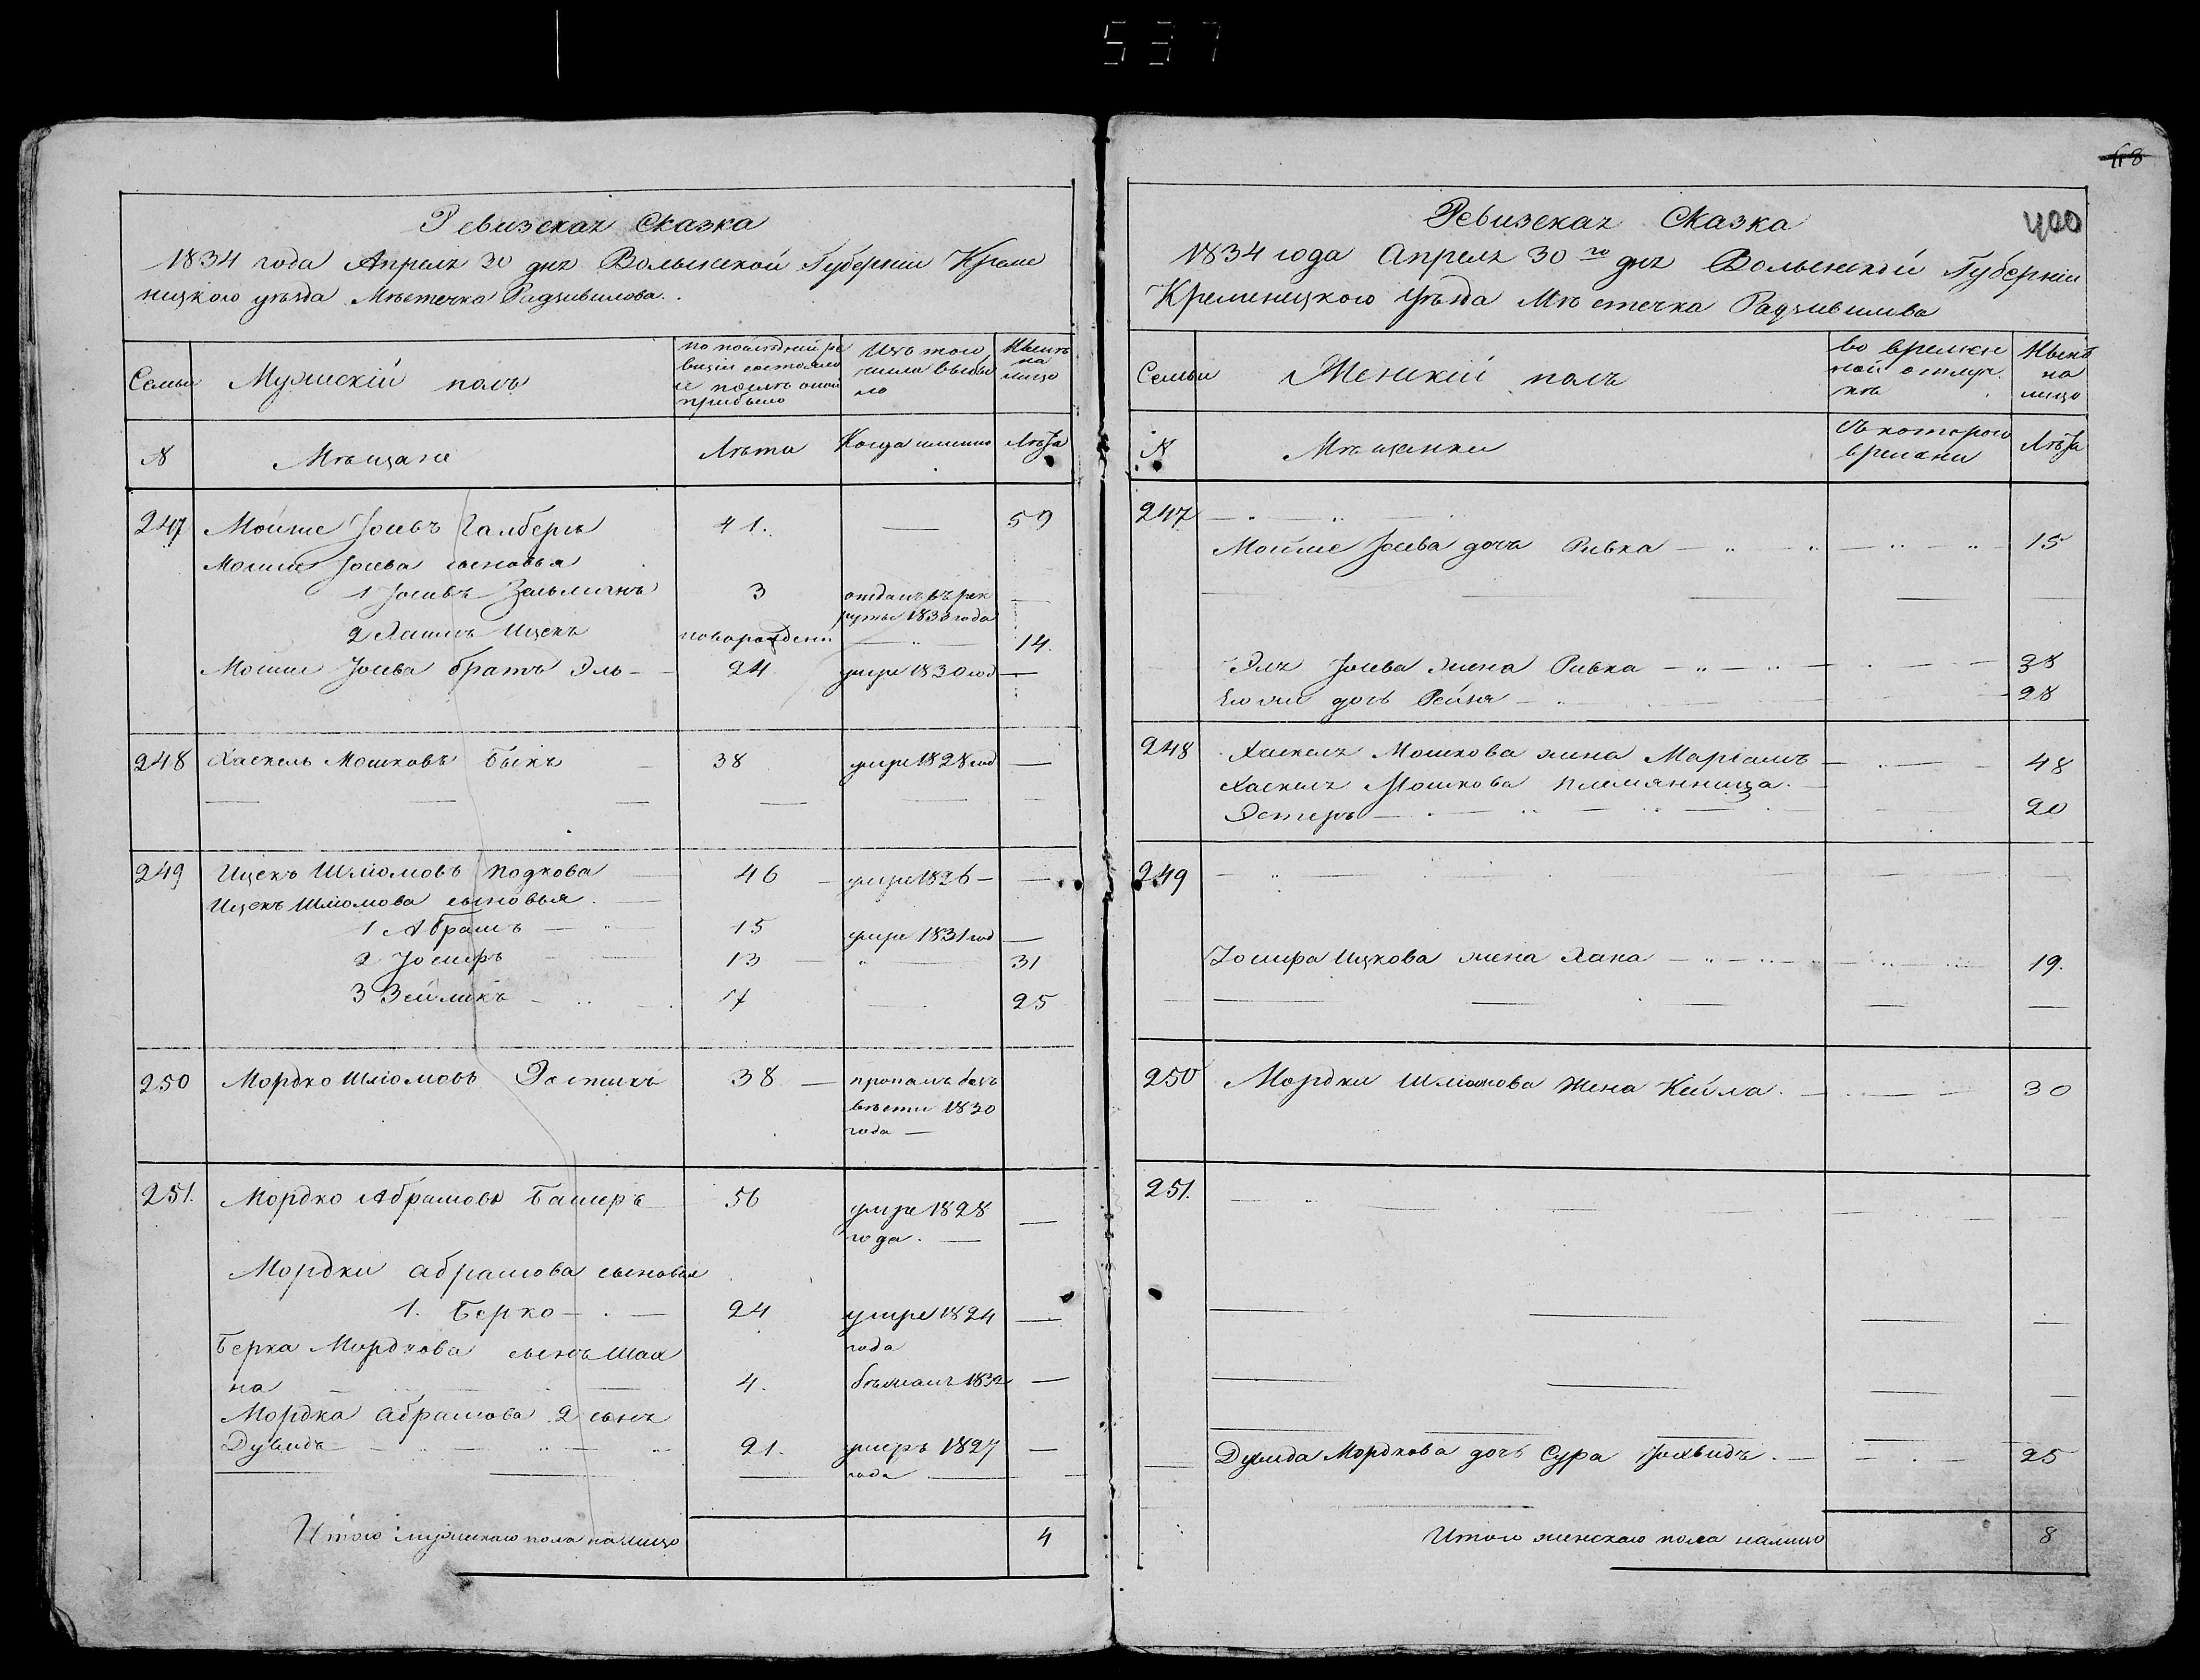 537
Ревизская Сказка
1834 года Апреля 30 дня Волынской Губернии Креме
ницкого уѣзда Мѣстечка Радзивилова.
Семьи
Мужискій полъ
по послѣдней ре
визіи состояло
и послѣ оной
прибыло
Изъ того
числа выбы
ло
Нынѣ
на
лицо
N
Мѣщане
Лѣта
Когда именно
Лѣта
247 Мойше Іосивъ Галберъ 41. — 59
Мошки Іосева сыновья
1 Іосивъ Зельманъ 3 отданъ въ рек
руты 1830 года —
2 Хаимъ Ицекъ новорожден — 14.
Мошки Іосева братъ Эль — 24 умре 1830 год —
248 Хаскель Мошковъ Быкъ 38 умре 1828 год —
249 Ицекъ Шліомовъ Подкова 46 — умре 1826 — —
Ицекъ Шліомова сыновья.
1 Абрамъ — 15 умре 1831 год —
2 Іосифъ 13 — 31
3 Зейликъ 17 — 25
250 Мордко Шліомовъ 38 — пропалъ безъ
вѣсти 1830
года —
251. Мордко Абрамовъ Башеръ 56 умре 1828
года. — —
Мордки абрамова сыновья
1. Берко — . — 24 умре 1824 —
года
Берка Мордкова сынъ Шах
на 4. бѣжалъ 1832 —
Мордка абрамова 2 сынъ
Дувидъ 21. умеръ 1827 —
года
Итого мужискаго пола на лицо 4
68
400
Ревизская Сказка
1834 года Апреля 30 го дня Волынской Губерніи
Кременецкого Уѣзда Мѣстечка Радзивилова
Семьи
Женскій полъ
во времен
ной отлуч
кѣ
Нынѣ
на
лицо
N
Мѣщанки
Съ которого
времени
Лѣта
247
Мойше Іосева дочь Ривка — 15
Эля Іосева жена Ривка — 38
дочь Рейзя — 28
248 Хаскеля Мошкова жена Маріамъ — 48
Хаскеля Мошкова племянница.
Эстеръ — 20
249
Іосифа Ицкова жена Хана — 19.
250 Мордки Шліомова жена Кейла. — 30
251.
Дувида Мордкова дочь Сура Іохвидъ. — 25
Итого женскаго пола налицо 8